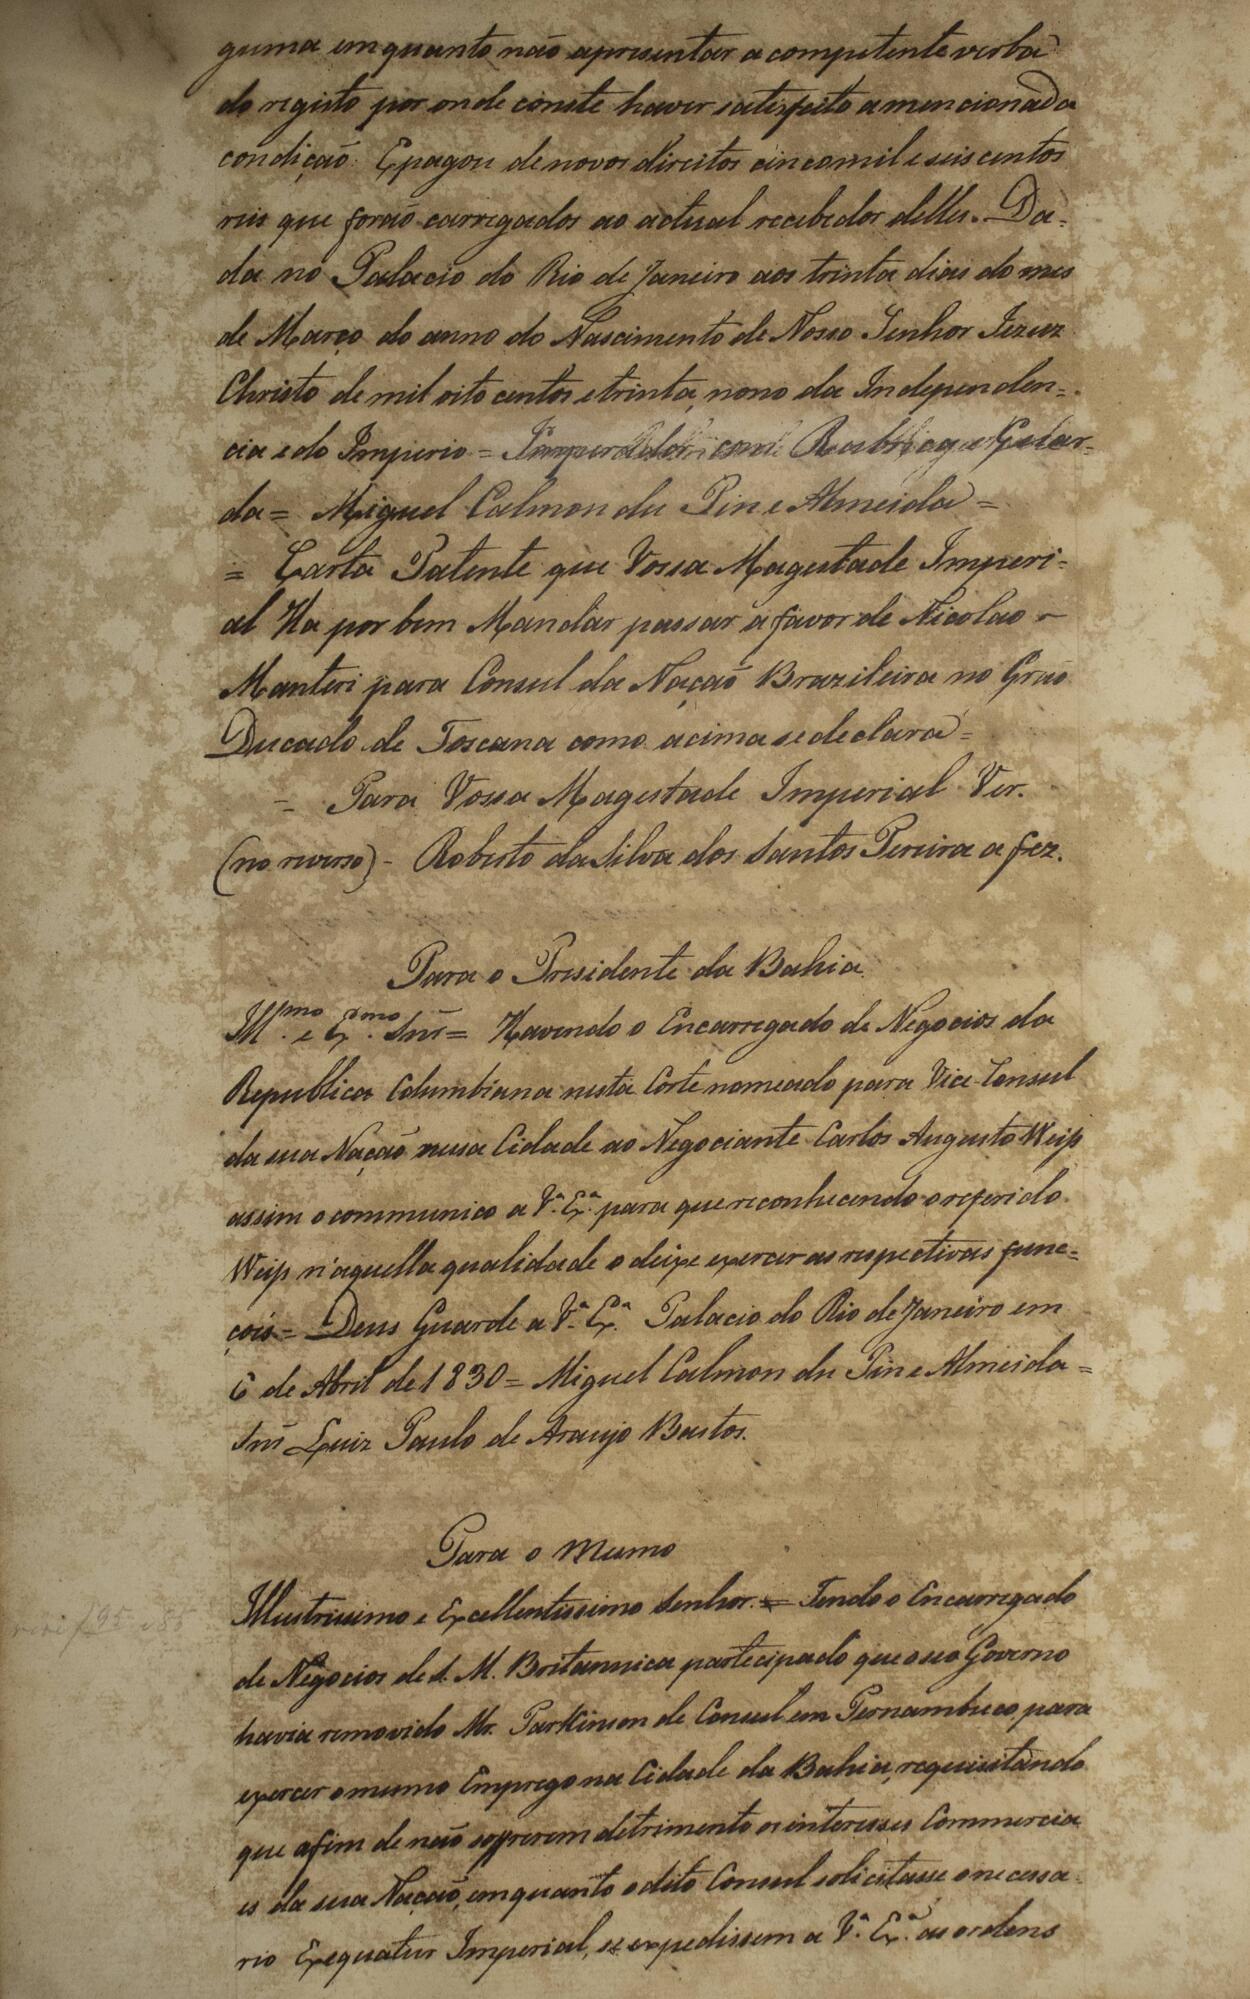 guma emquanto não apresentar a competente verba
do registo por onde conste haver satisfeito a mencionada
condição. E pagou de novos direitos cinco mil e seis centos
reis que forão carregados ao actual recebedor delles. Da-
da no Palacio do Rio de Janeiro aos trinta dias do mes
de Março do anno do Nascimento de Nosso Senhor Jezuz
Christo de mil oito centos e trinta, nono da Independen=
cia e do Imperio = Imperador com Rubrica e Guar-
da = Miguel Calmon du Pin e Almeida =
= Carta Patente que Vossa Magestade Imperi=
al Ha por bem Mandar passar a favor de Nicolao
Manteri para Consul da Nação Brazileira no Grão
Ducado de Toscana como acima se declara =
= Para Vossa Magestade Imperial Ver.
(no reverso) - Roberto da Silva dos Santos Pereira a fez.
Para o Presidente da Bahia
Ill.mo e Ex.mo Snr = Havendo o Encarregado de Negocios da
Republica Columbiana nesta Corte nomeado para Vice-Consul
da sua Nação nessa Cidade ao Negociante Carlos Augusto Weip
assim o communico a V.ª Ex.ª para que reconhecendo o referido
Weip n'aquella qualidade o deixe exercer as respectivas func=
ções = Deus Guarde a V.ª Ex.ª Palacio do Rio de Janeiro em
6 de Abril de 1830 = Miguel Calmon du Pin e Almeida =
Snr Luiz Paulo de Araujo Bastos.
Para o mesmo
Illustrissimo e Excellentissimo Senhor. = Tendo o Encarregado
de Negocios de S. M. Britannica participado que o seo Governo
havia removido Mr. Parkinson de Consul em Pernambuco, para
exercer o mesmo Emprego na Cidade da Bahia, requisitando
que afim de não soffrerem detrimento os interesses Commercia
es da sua Nação, emquanto o dito Consul solicitasse o necessa
rio Exequatur Imperial, se expedissem a V.ª Ex.ª as ordens